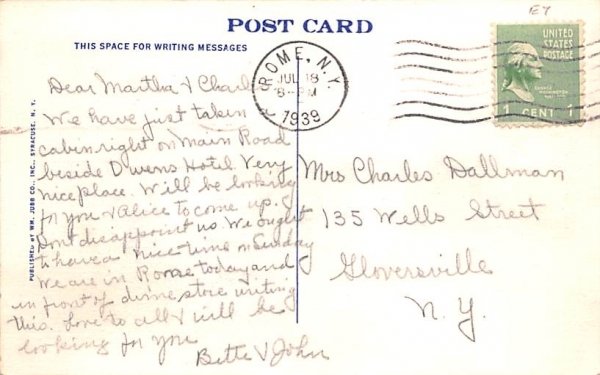 E7
POST CARD
THIS SPACE FOR WRITING MESSAGES
UNITED
STATES
POSTAGE
GEORGE
WASHINGTON
1 CENT 1
ROME, N.Y.
JUL 18
8-PM
1939
PUBLISHED BY WM. JUBB CO., INC., SYRACUSE, N. Y.
Dear Martha & Charl
We have just taken
cabin right on Main Road
beside Owens Hotel. Very
nice place. Will be looking
for you & Alice to come up. &
Dont disappoint us. We ought
to have a nice time on Sunday
We are in Rome today and
in front of dime store writing
this. Love to all & will be
looking for you
Bette & John
Mrs Charles Dallman
135 Wells Street
Gloversville
N. Y.